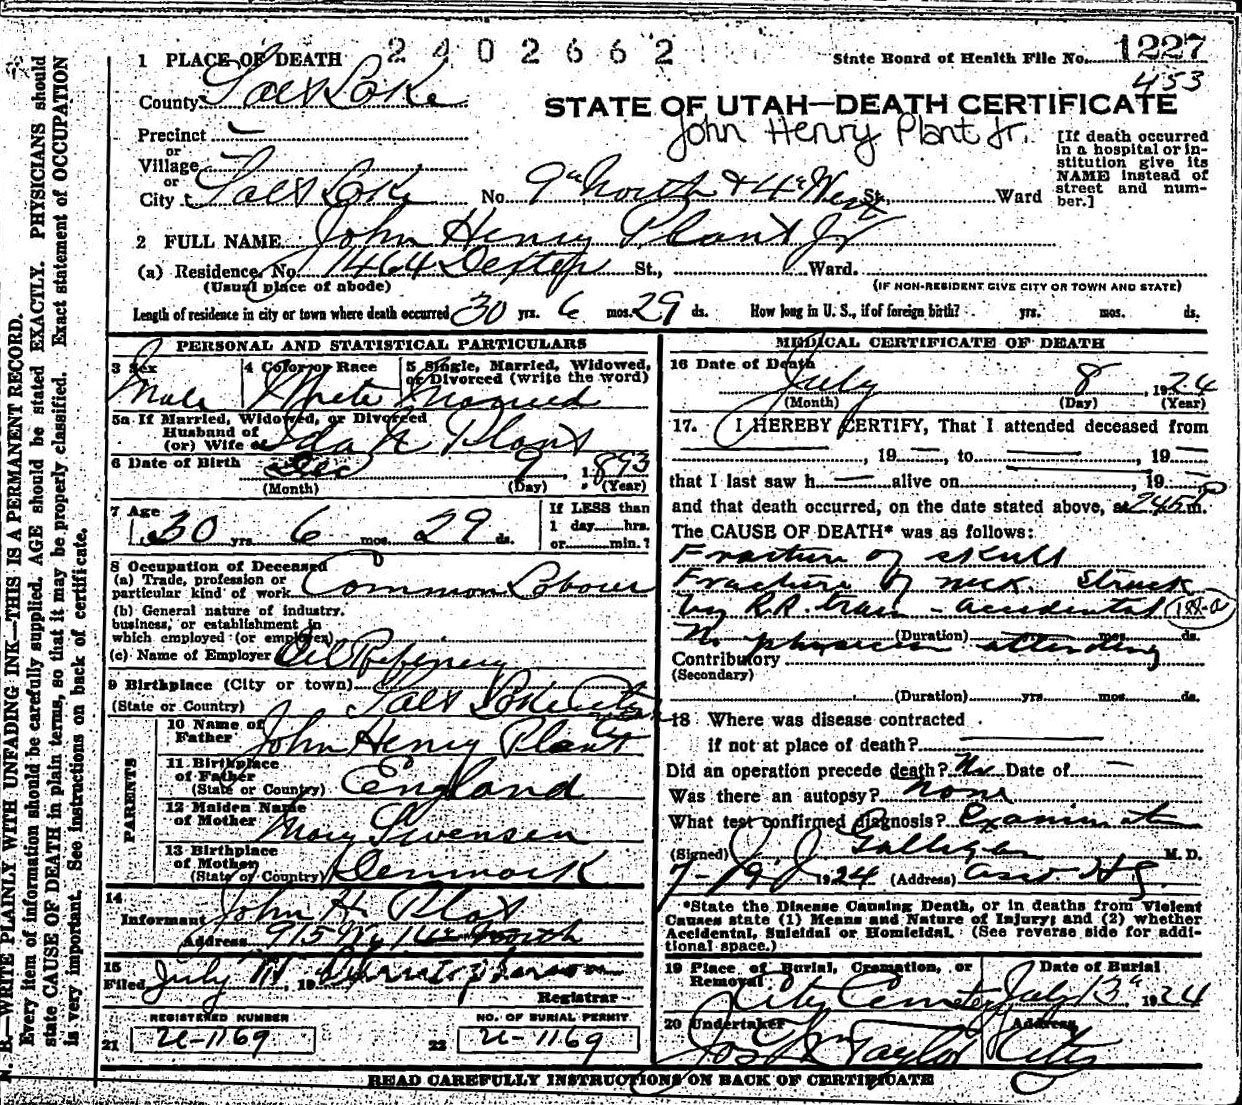 1 PLACE OF DEATH 2402662 State Board of Health File No. 1227
453
County Salt Lake
STATE OF UTAH—DEATH CERTIFICATE
John Henry Plant Jr.
Precinct —
or
Village
or
City Salt Lake No. 9th North & 4th West St. Ward
[If death occurred in a hospital or institution give its NAME instead of street and number.]
2 FULL NAME John Henry Plant Jr
(a) Residence, No. 1464 Dexter St., Ward.
(Usual place of abode) (IF NON-RESIDENT GIVE CITY OR TOWN AND STATE)
Length of residence in city or town where death occurred 30 yrs. 6 mos. 29 ds. How long in U. S., if of foreign birth? yrs. mos. ds.
PERSONAL AND STATISTICAL PARTICULARS
3 Sex Male
4 Color or Race White
5 Single, Married, Widowed, or Divorced (write the word) Married
5a If Married, Widowed, or Divorced
Husband of
(or) Wife of Ida Plant
6 Date of Birth Dec 9 1893
(Month) (Day) (Year)
7 Age 30 yrs. 6 mos. 29 ds.
If LESS than
1 day hrs.
or min.?
8 Occupation of Deceased
(a) Trade, profession or
particular kind of work Common Laborer
(b) General nature of industry,
business, or establishment in
which employed (or employer)
(c) Name of Employer Oil Refinery
9 Birthplace (City or town) Salt Lake City
(State or Country)
PARENTS
10 Name of
Father John Henry Plant
11 Birthplace
of Father
(State or Country) England
12 Maiden Name
of Mother Mary Swensen
13 Birthplace
of Mother
(State or Country) Denmark
14
Informant John H. Plant
Address 915 W. North
15
Filed July 19
Registrar
REGISTERED NUMBER NO. OF BURIAL PERMIT
21 U-1169 22 U-1169
MEDICAL CERTIFICATE OF DEATH
16 Date of Death
July 8, 1924
(Month) (Day) (Year)
17. I HEREBY CERTIFY, That I attended deceased from
—, 19—, to —, 19—
that I last saw h— alive on —, 19—
and that death occurred, on the date stated above, at 245 P m.
The CAUSE OF DEATH* was as follows:
Fracture of skull
Fracture of neck. Struck
by R.R. train - accidental
(Duration) yrs. mos. ds.
No physician attending
Contributory
(Secondary)
(Duration) yrs. mos. ds.
18 Where was disease contracted
if not at place of death? —
Did an operation precede death? No Date of —
Was there an autopsy? None
What test confirmed diagnosis? Examination
(Signed) J. J. Galligan M. D.
7-9 1924 (Address)
*State the Disease Causing Death, or in deaths from Violent
Causes state (1) Means and Nature of Injury; and (2) whether
Accidental, Suicidal or Homicidal. (See reverse side for additional space.)
19 Place of Burial, Cremation, or
Removal City Cemetery
Date of Burial
July 13th 1924
20 Undertaker Jos Wm Taylor
Address City
READ CAREFULLY INSTRUCTIONS ON BACK OF CERTIFICATE
N. B.—WRITE PLAINLY WITH UNFADING INK—THIS IS A PERMANENT RECORD.
Every item of information should be carefully supplied. AGE should be stated EXACTLY. PHYSICIANS should
state CAUSE OF DEATH in plain terms, so that it may be properly classified. Exact statement of OCCUPATION
is very important. See instructions on back of certificate.